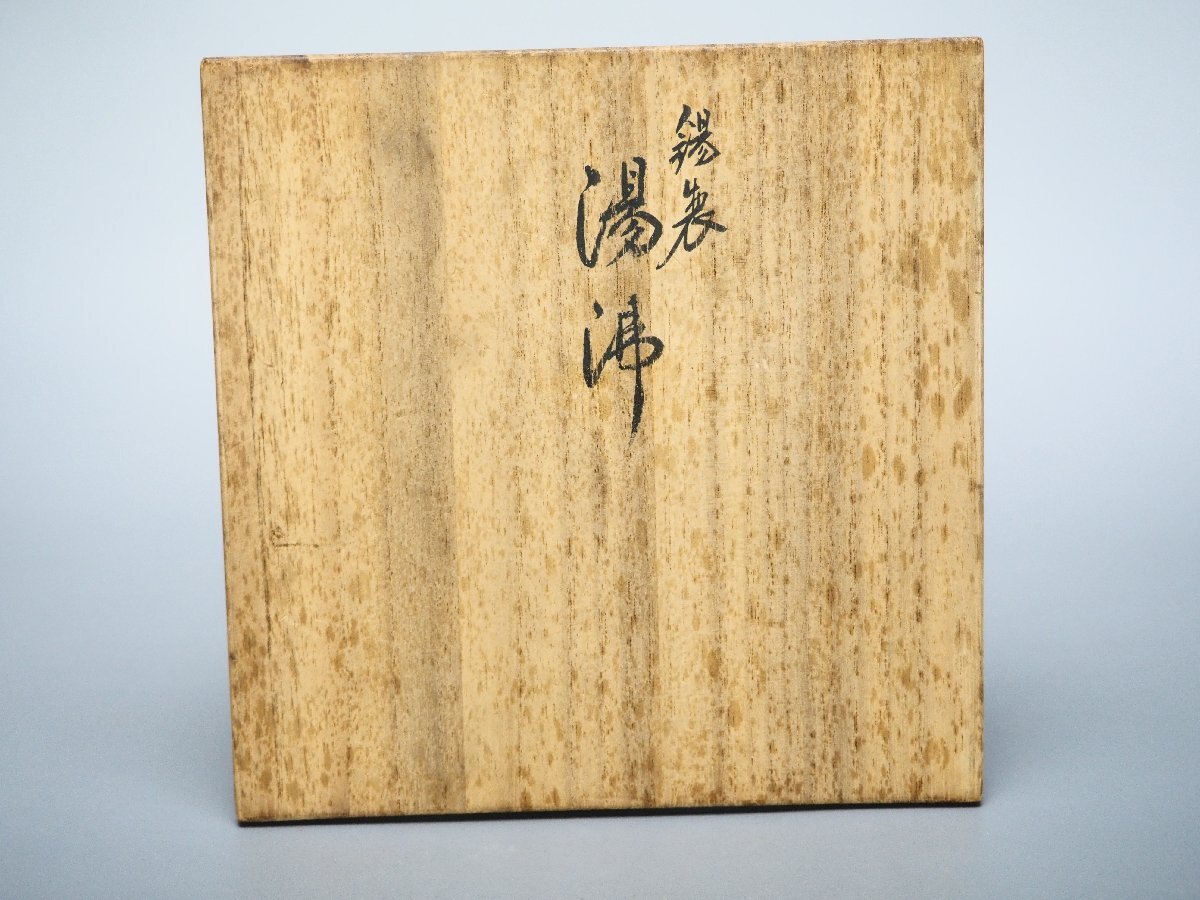 錫製
湯沸